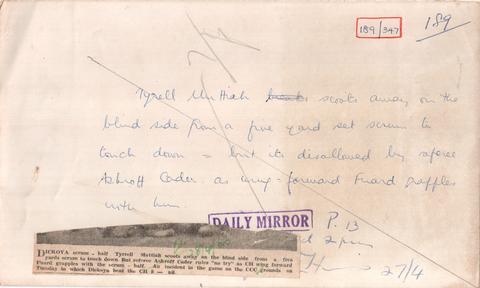 189/347
189
Tyrell Muttiah scoots away on the
blind side from a five yard set scrum to
touch down - but its disallowed by referee
Ashroff Cader as wing-forward Fuard grapples
with him.
DAILY MIRROR
P. 13
27/4
DICKOYA scrum - half Tyrell Muttiah scoots away on the blind side from a five
yards scrum to touch down But referee Ashroff Cader rules "no try" as CH wing forward
Fuard grapples with the scrum - half. An incident in the game on the CCC grounds on
Tuesday in which Dickoya beat the CH 8 — nil